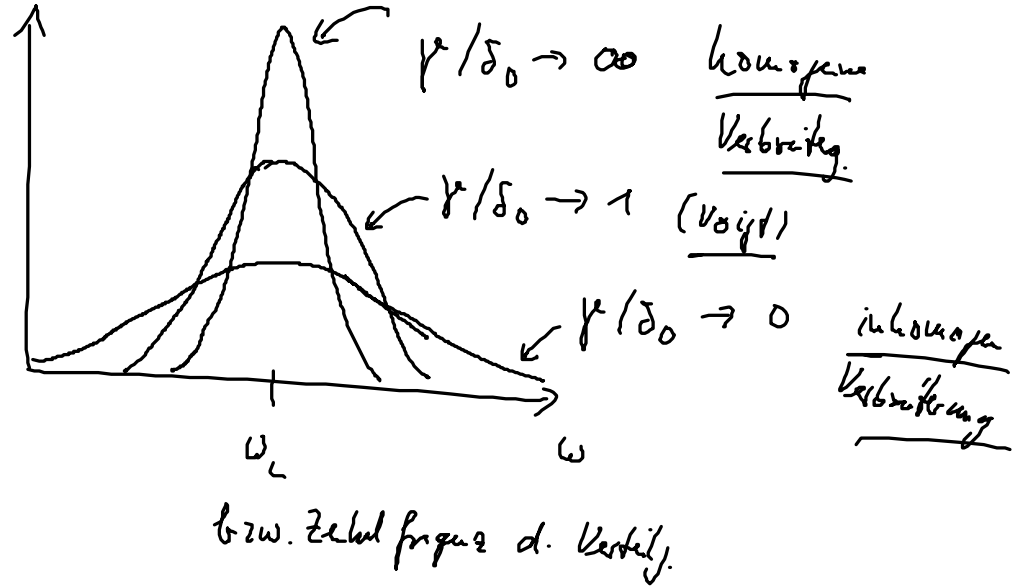 γ/δ₀ → ∞ homogene
Verbreiterg.
γ/δ₀ → 1 (Voigt)
γ/δ₀ → 0 inhomogen
Verbreiterung
ω_L ω
bzw. Zentralfrequenz d. Verteilg.